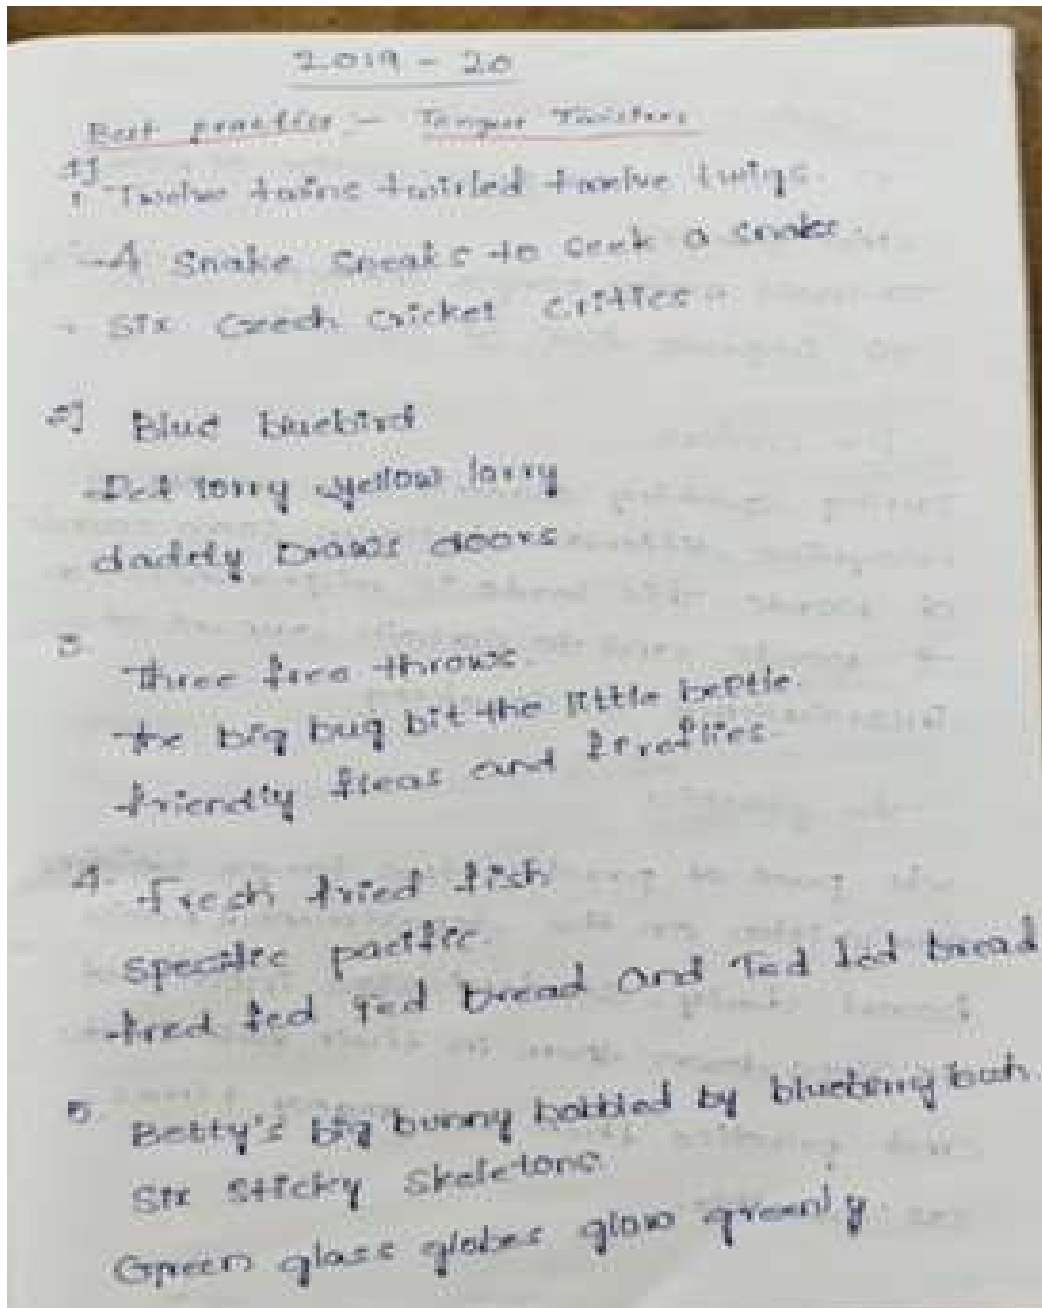 2019 - 20
Best practice - Tongue Twisters
1]
Twelve twins twirled twelve twigs.
A snake sneaks to seek a snake.
Six Czech cricket critics
2] Blue bluebird
Red lorry yellow lorry
daddy Draws doors
3.
Three free throws.
the big bug bit the little beetle.
friendly fleas and fireflies
4. Fresh fried fish
Specific pacific.
fred fed Ted bread and Ted fed bread
5. Betty's big bunny bobbled by blueberry
Six sticky skeletons
Green glass globes glow greenly